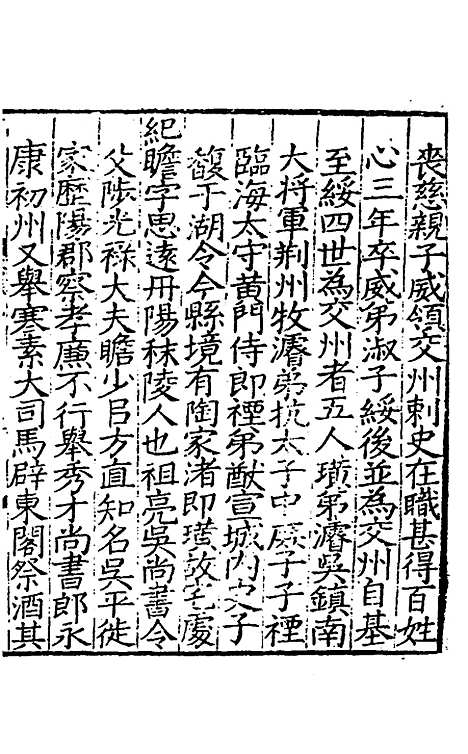 喪慈親子威領交州刺史在職甚得百姓
心三年卒威弟淑子綏後並為交州自基
至綏四世為交州者五人璜弟濬吳鎮南
大將軍荆州牧濬弟抗太子中庶子子禋
臨海太守黃門侍郎禋弟猷宣城內史子
馥于湖令今縣境有陶家渚即璜故宅處
紀瞻字思遠丹陽秣陵人也祖亮吳尚書令
父陟光祿大夫瞻少㠯方直知名吳平徙
家歷陽郡察孝廉不行舉秀才尚書郎永
康初州又舉寒素大司馬辟東閣祭酒其